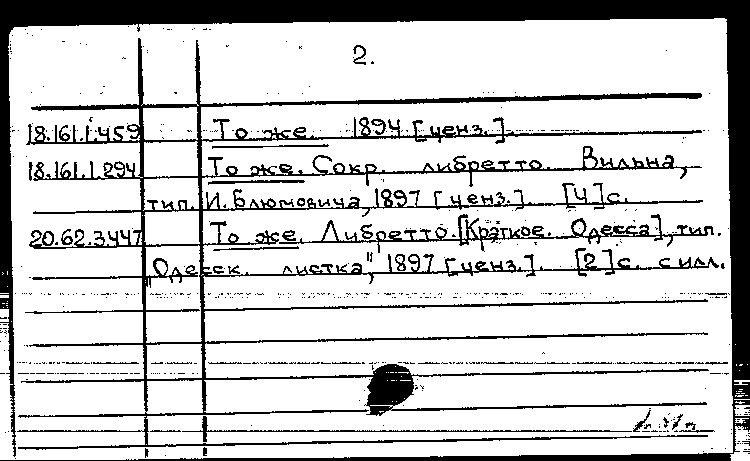 2.
18.161.1.459 То же. 1894 [ценз.].
18.161.1.294 То же. Сокр. либретто. Вильна,
тип. И. Блюмовича, 1897 [ценз.]. [4] с.
20.62.3.447 То же. Либретто. [Краткое. Одесса], тип.
„Одесск. листка", 1897 [ценз.]. [2] с. с илл.